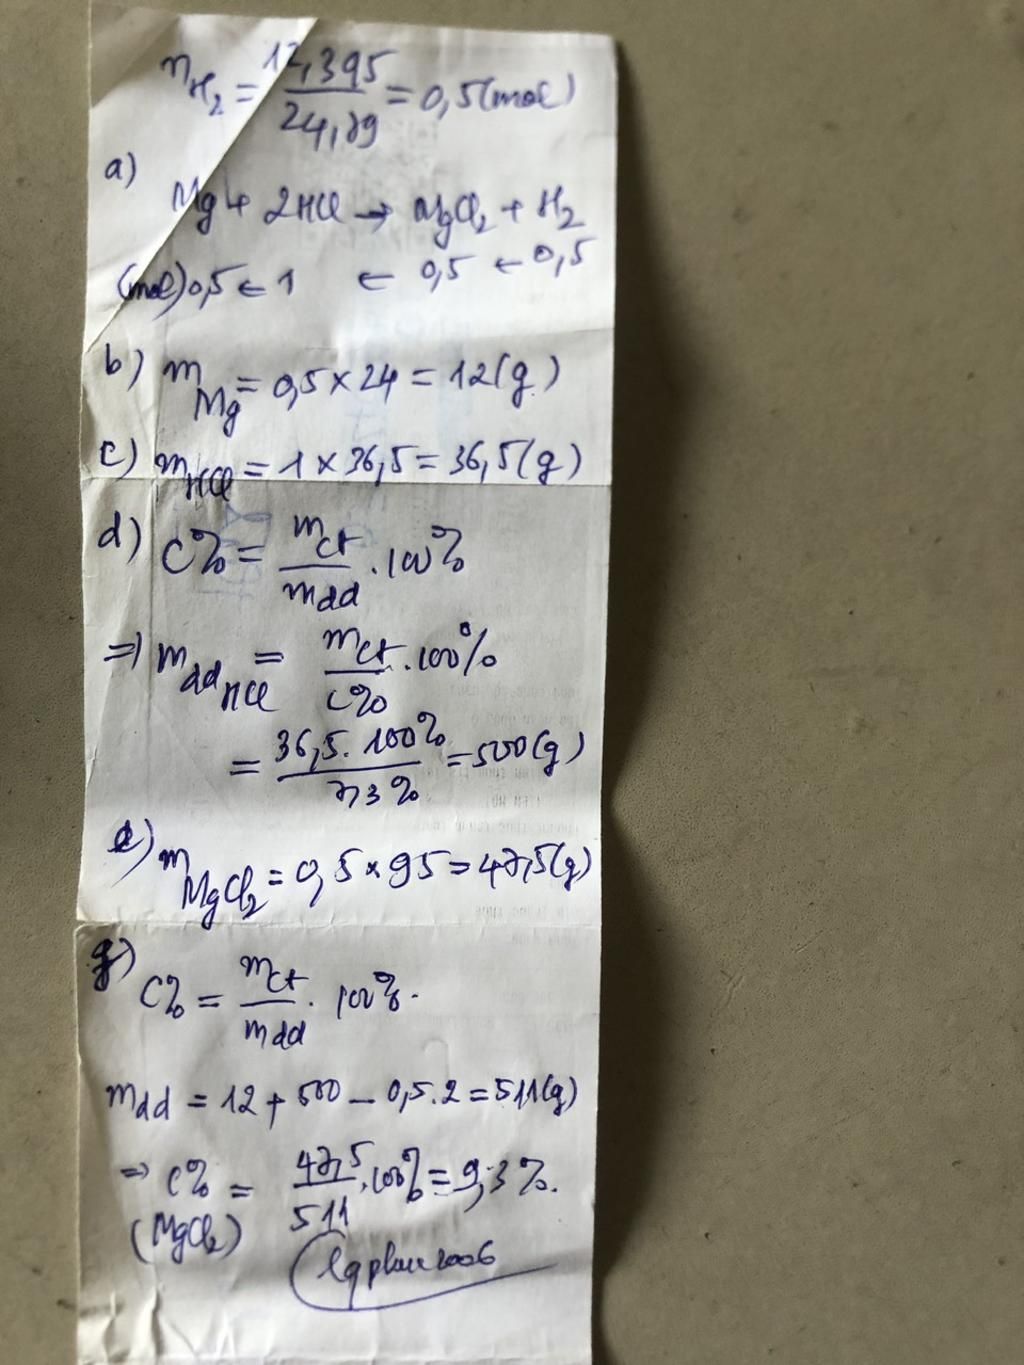 nH2 = 12,395 / 24,79 = 0,5 (mol)
a)
Mg + 2HCl → MgCl2 + H2
(mol) 0,5 ← 1 ← 0,5 ← 0,5
b) mMg = 0,5 × 24 = 12 (g)
c) mHCl = 1 × 36,5 = 36,5 (g)
d) C% = mct / mdd . 100%
=) mddHCl = mct / C% . 100%
= 36,5. 100% / 7,3% = 500 (g)
e) mMgCl2 = 0,5 × 95 = 47,5 (g)
g) C% = mct / mdd . 100%.
mdd = 12 + 500 - 0,5.2 = 511 (g)
=> C% (MgCl2) = 47,5 / 511 .100% = 9,3%.